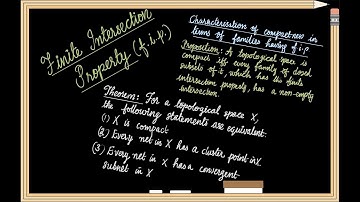 Finite Intersection
Property (f.i.p.)
Characterisation of compactness in
terms of families having f.i.p
Proposition: A topological space is
compact iff every family of closed
subsets of it, which has the finite
intersection property, has a non-empty
intersection
Theorem: For a topological space X,
the following statements are equivalent.
(1) X is compact
(2) Every net in X has a cluster point in X
(3) Every net in X has a convergent
subnet in X